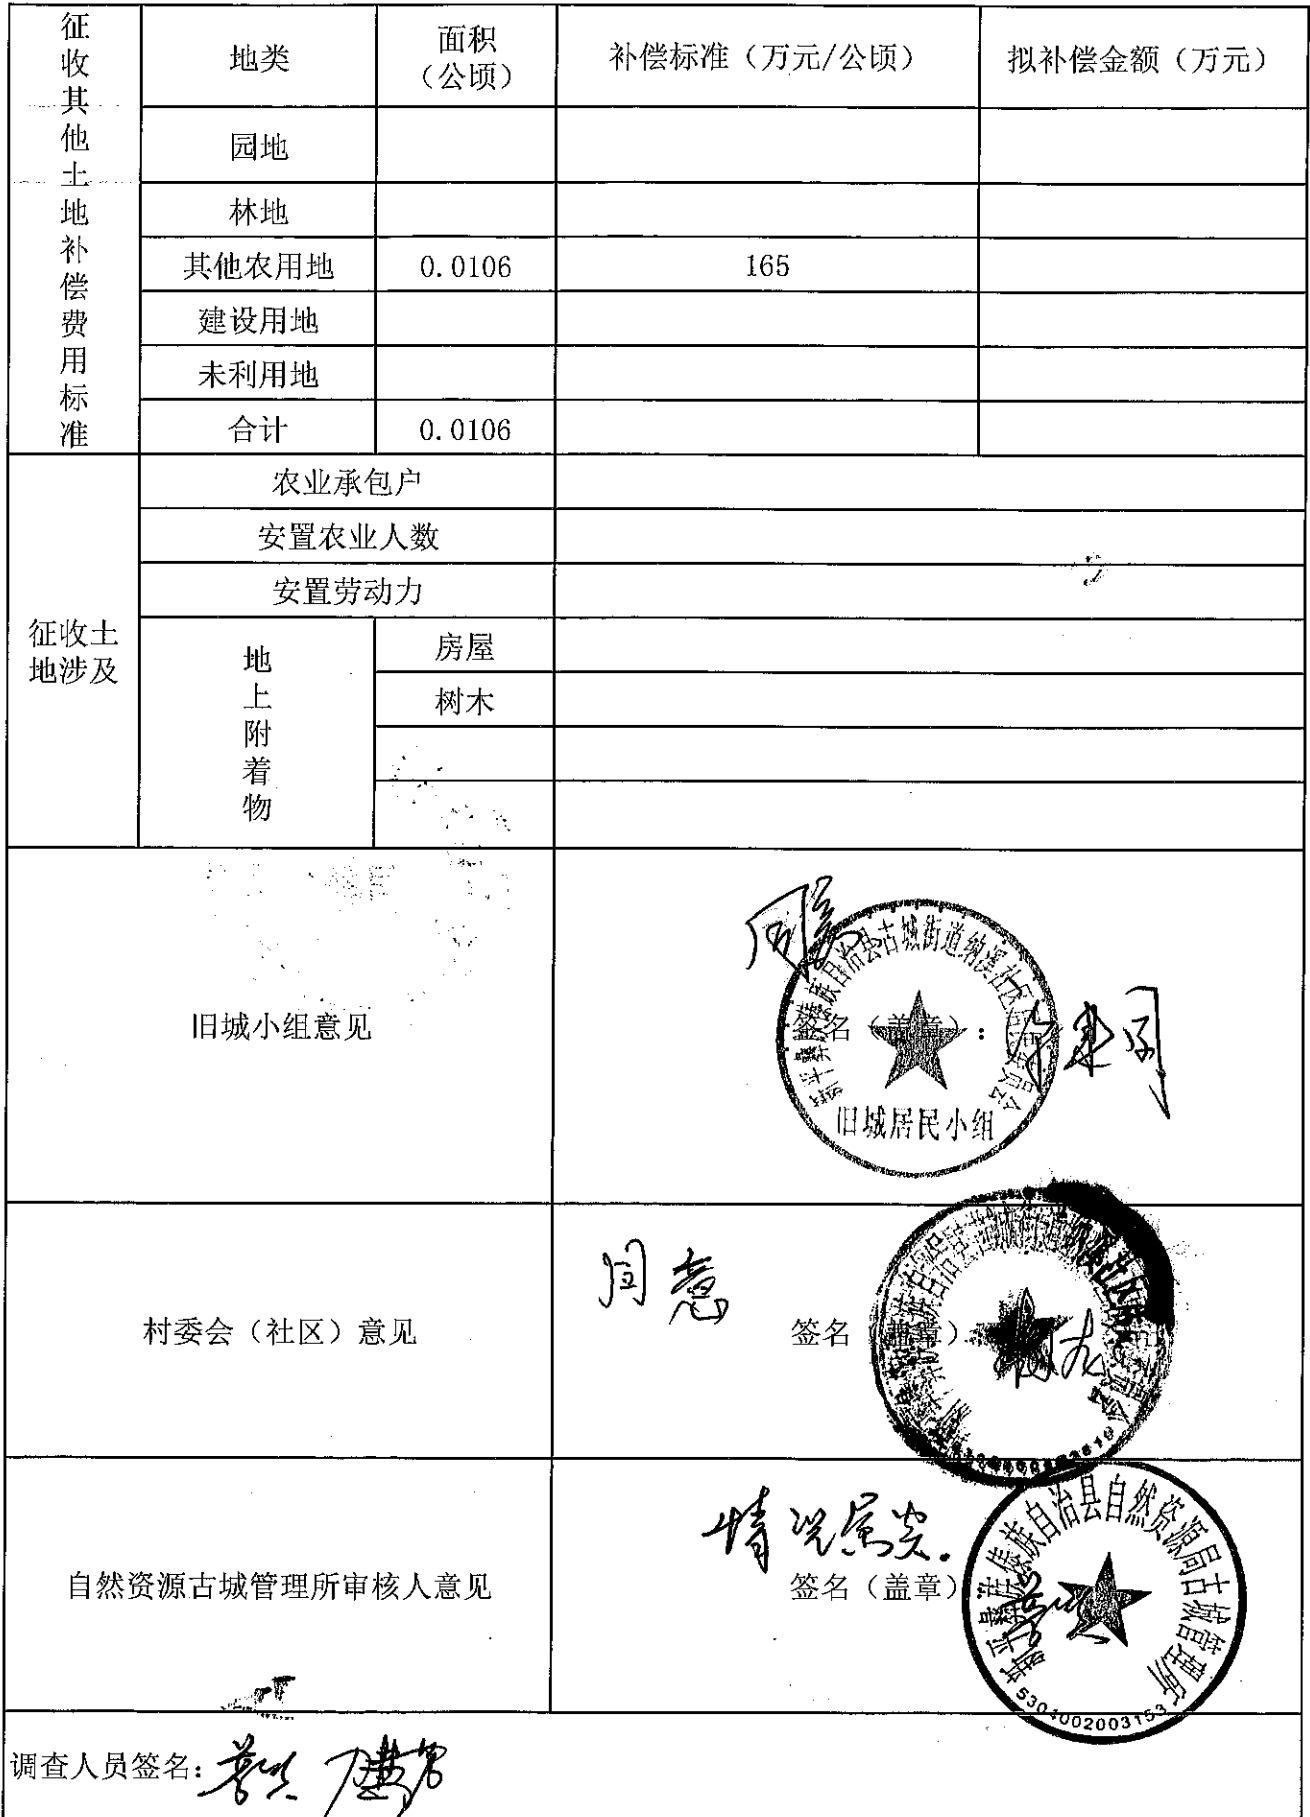 征收其他土地补偿费用标准
地类
面积
（公顷）
补偿标准（万元/公顷）
拟补偿金额（万元）
园地
林地
其他农用地
0.0106
165
建设用地
未利用地
合计
0.0106
征收土
地涉及
农业承包户
安置农业人数
安置劳动力
地上附着物
房屋
树木
旧城小组意见
同意
签名（盖章）：
新平彝族傣族自治县古城街道纳溪社区居民委员会
旧城居民小组
村委会（社区）意见
同意
签名（盖章）
自然资源古城管理所审核人意见
情况属实.
签名（盖章）
新平彝族傣族自治县自然资源局古城管理所
5304002003153
调查人员签名：